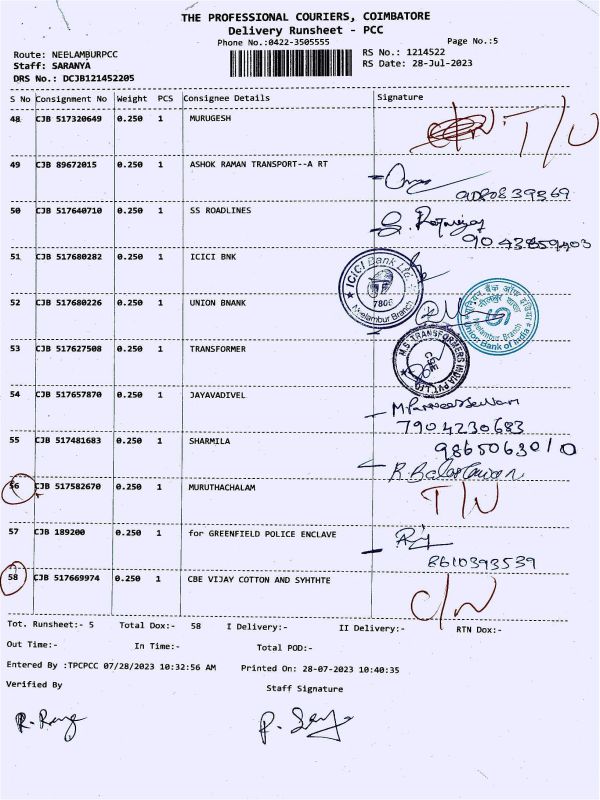 THE PROFESSIONAL COURIERS, COIMBATORE
Delivery Runsheet - PCC
Phone No.:0422-3505555 Page No.:5
Route: NEELAMBURPCC RS No.: 1214522
Staff: SARANYA RS Date: 28-Jul-2023
DRS No.: DCJB121452205
S No Consignment No Weight PCS Consignee Details Signature
48 CJB 517320649 0.250 1 MURUGESH T/N
49 CJB 89672015 0.250 1 ASHOK RAMAN TRANSPORT--A RT
50 CJB 517640710 0.250 1 SS ROADLINES
51 CJB 517680282 0.250 1 ICICI BNK
ICICI Bank Ltd.
7806
Neelambur Branch
52 CJB 517680226 0.250 1 UNION BNANK
यूनियन बैंक ऑफ इंडिया
Neelambur Branch
Union Bank of India
53 CJB 517627508 0.250 1 TRANSFORMER
M.S TRANSFORMERS INDIA PVT. LTD
54 CJB 517657870 0.250 1 JAYAVADIVEL
7904230683
55 CJB 517481683 0.250 1 SHARMILA
9865063010
56 CJB 517582670 0.250 1 MURUTHACHALAM T/N
57 CJB 189200 0.250 1 for GREENFIELD POLICE ENCLAVE
8610393539
58 CJB 517669974 0.250 1 CBE VIJAY COTTON AND SYHTHTE C/N
Tot. Runsheet:- 5 Total Dox:- 58 I Delivery:- II Delivery:- RTN Dox:-
Out Time:- In Time:- Total POD:-
Entered By :TPCPCC 07/28/2023 10:32:56 AM Printed On: 28-07-2023 10:40:35
Verified By Staff Signature